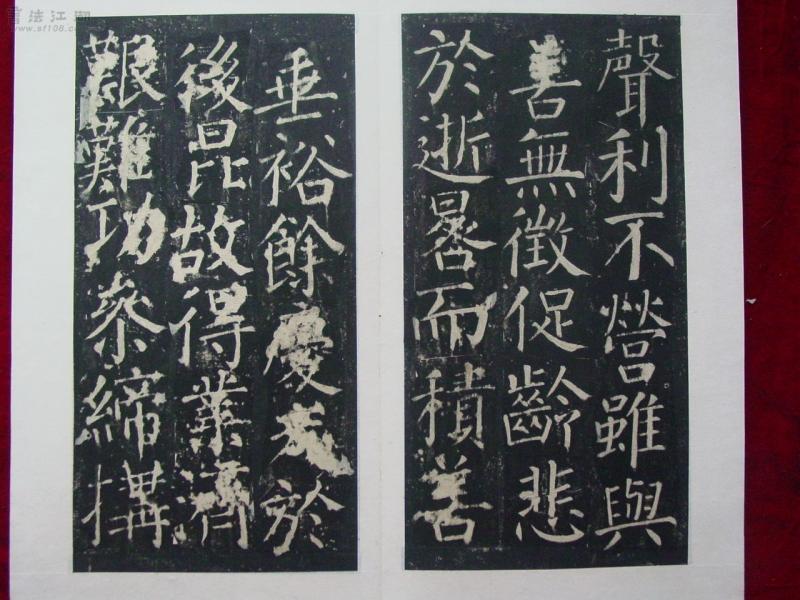 聲利不營雖與
善無徵促齡悲
於逝晷而積善
垂裕餘慶於
後昆故得業濟
艱難功參締搆
書法江湖
www.sf108.com